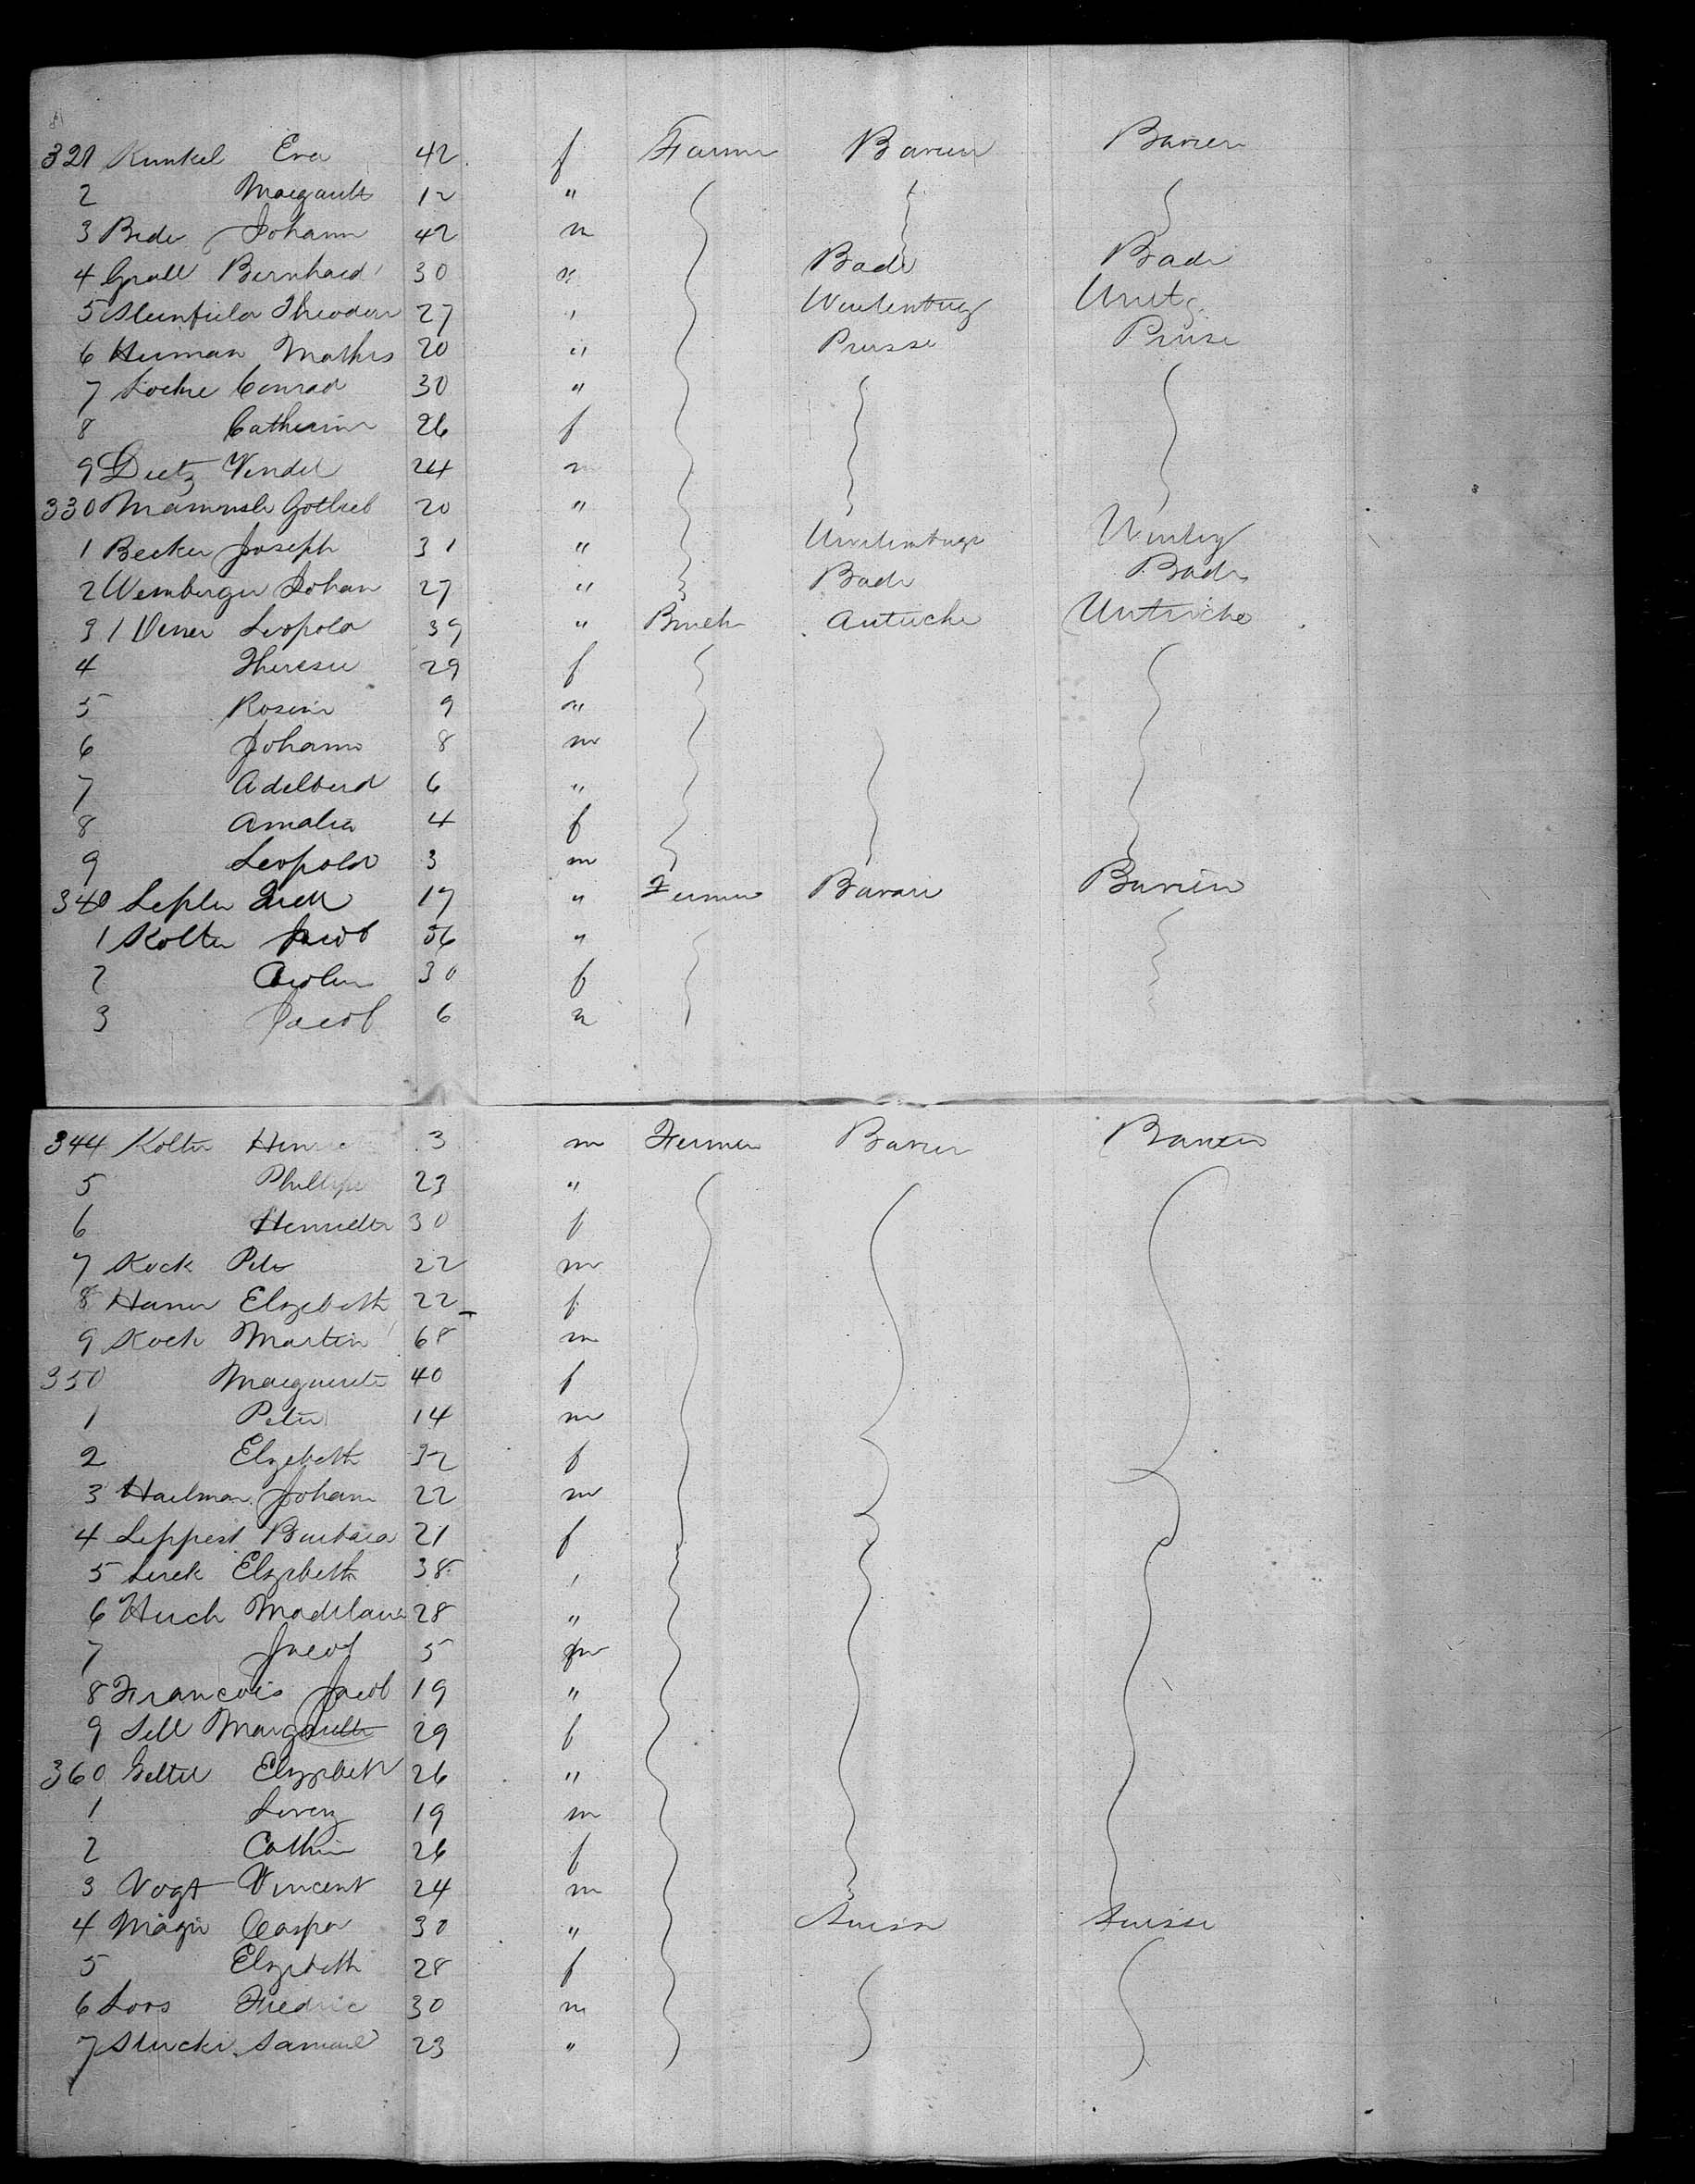 321 Kunkel Eva 42 f Farmer Bavier Bavier
2 Margarett 12 "
3 Beder Johann 42 m
4 Grall Bernhard 30 " Bade Bade
5 Steinfeler Theodore 27 " Wurtenburg Wurtg
6 Herman Mathis 20 " Prusse Prusse
7 Conrad 30 "
8 Catherine 26 f
9 Dietz Vendel 24 m
330 Gotlieb 20 "
1 Becker Joseph 31 " Wurtemburge Wurtbg
2 Wemberger Johan 27 " Bade Bade
3 Leopold 39 " Autriche Autriche
4 Theresie 29 f
5 Rosine 9 "
6 Johann 8 m
7 Adelberd 6 "
8 Amalia 4 f
9 Leopold 3 m
340 Lepler 17 " Fermer Bavari Bavier
1 Kolter Jacob 56 "
2 Carolin 30 f
3 Jacob 6 m
344 Kolter 3 m Fermer Bavier Bavier
5 Phillipe 23 "
6 Henrietta 30 f
7 Kock Peter 22 m
8 Hamer Elzebeth 22 f
9 Koch Martin 68 m
350 Marguerete 40 f
1 Peter 14 m
2 Elzebeth 32 f
3 Hailman Johann 22 m
4 Leppert Barbara 21 f
5 Lerek Elzebeth 38 "
6 Hirch Madelaine 28 "
7 Jacob 5 m
8 Francois Jacob 19 "
9 Sell Margarette 29 f
360 Geltel Elyzebeth 26 "
1 Lorenz 19 m
2 Cathrin 26 f
3 Vogt Vincent 24 m
4 Mägie Caspar 30 " Suisse Suisse
5 Elyzebeth 28 f
6 Loos Fredric 30 m
7 Stucki Samuel 23 "